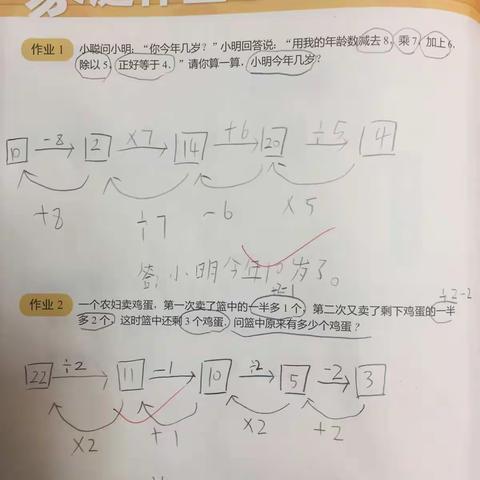 作业 1
小聪问小明：“你今年几岁？”小明回答说：“用我的年龄数减去 8，乘 7，加上 6，
除以 5，正好等于 4。”请你算一算，小明今年几岁？
-8 ×7 +6 ÷5
10 2 14 20 4
+8 ÷7 -6 ×5
答：小明今年10岁了。
÷2-1 ÷2-2
作业 2
一个农妇卖鸡蛋，第一次卖了篮中的一半多 1 个，第二次又卖了剩下鸡蛋的一半
多 2 个，这时篮中还剩 3 个鸡蛋，问篮中原来有多少个鸡蛋？
÷2 -1 ÷2 -2
22 11 10 5 3
×2 +1 ×2 +2